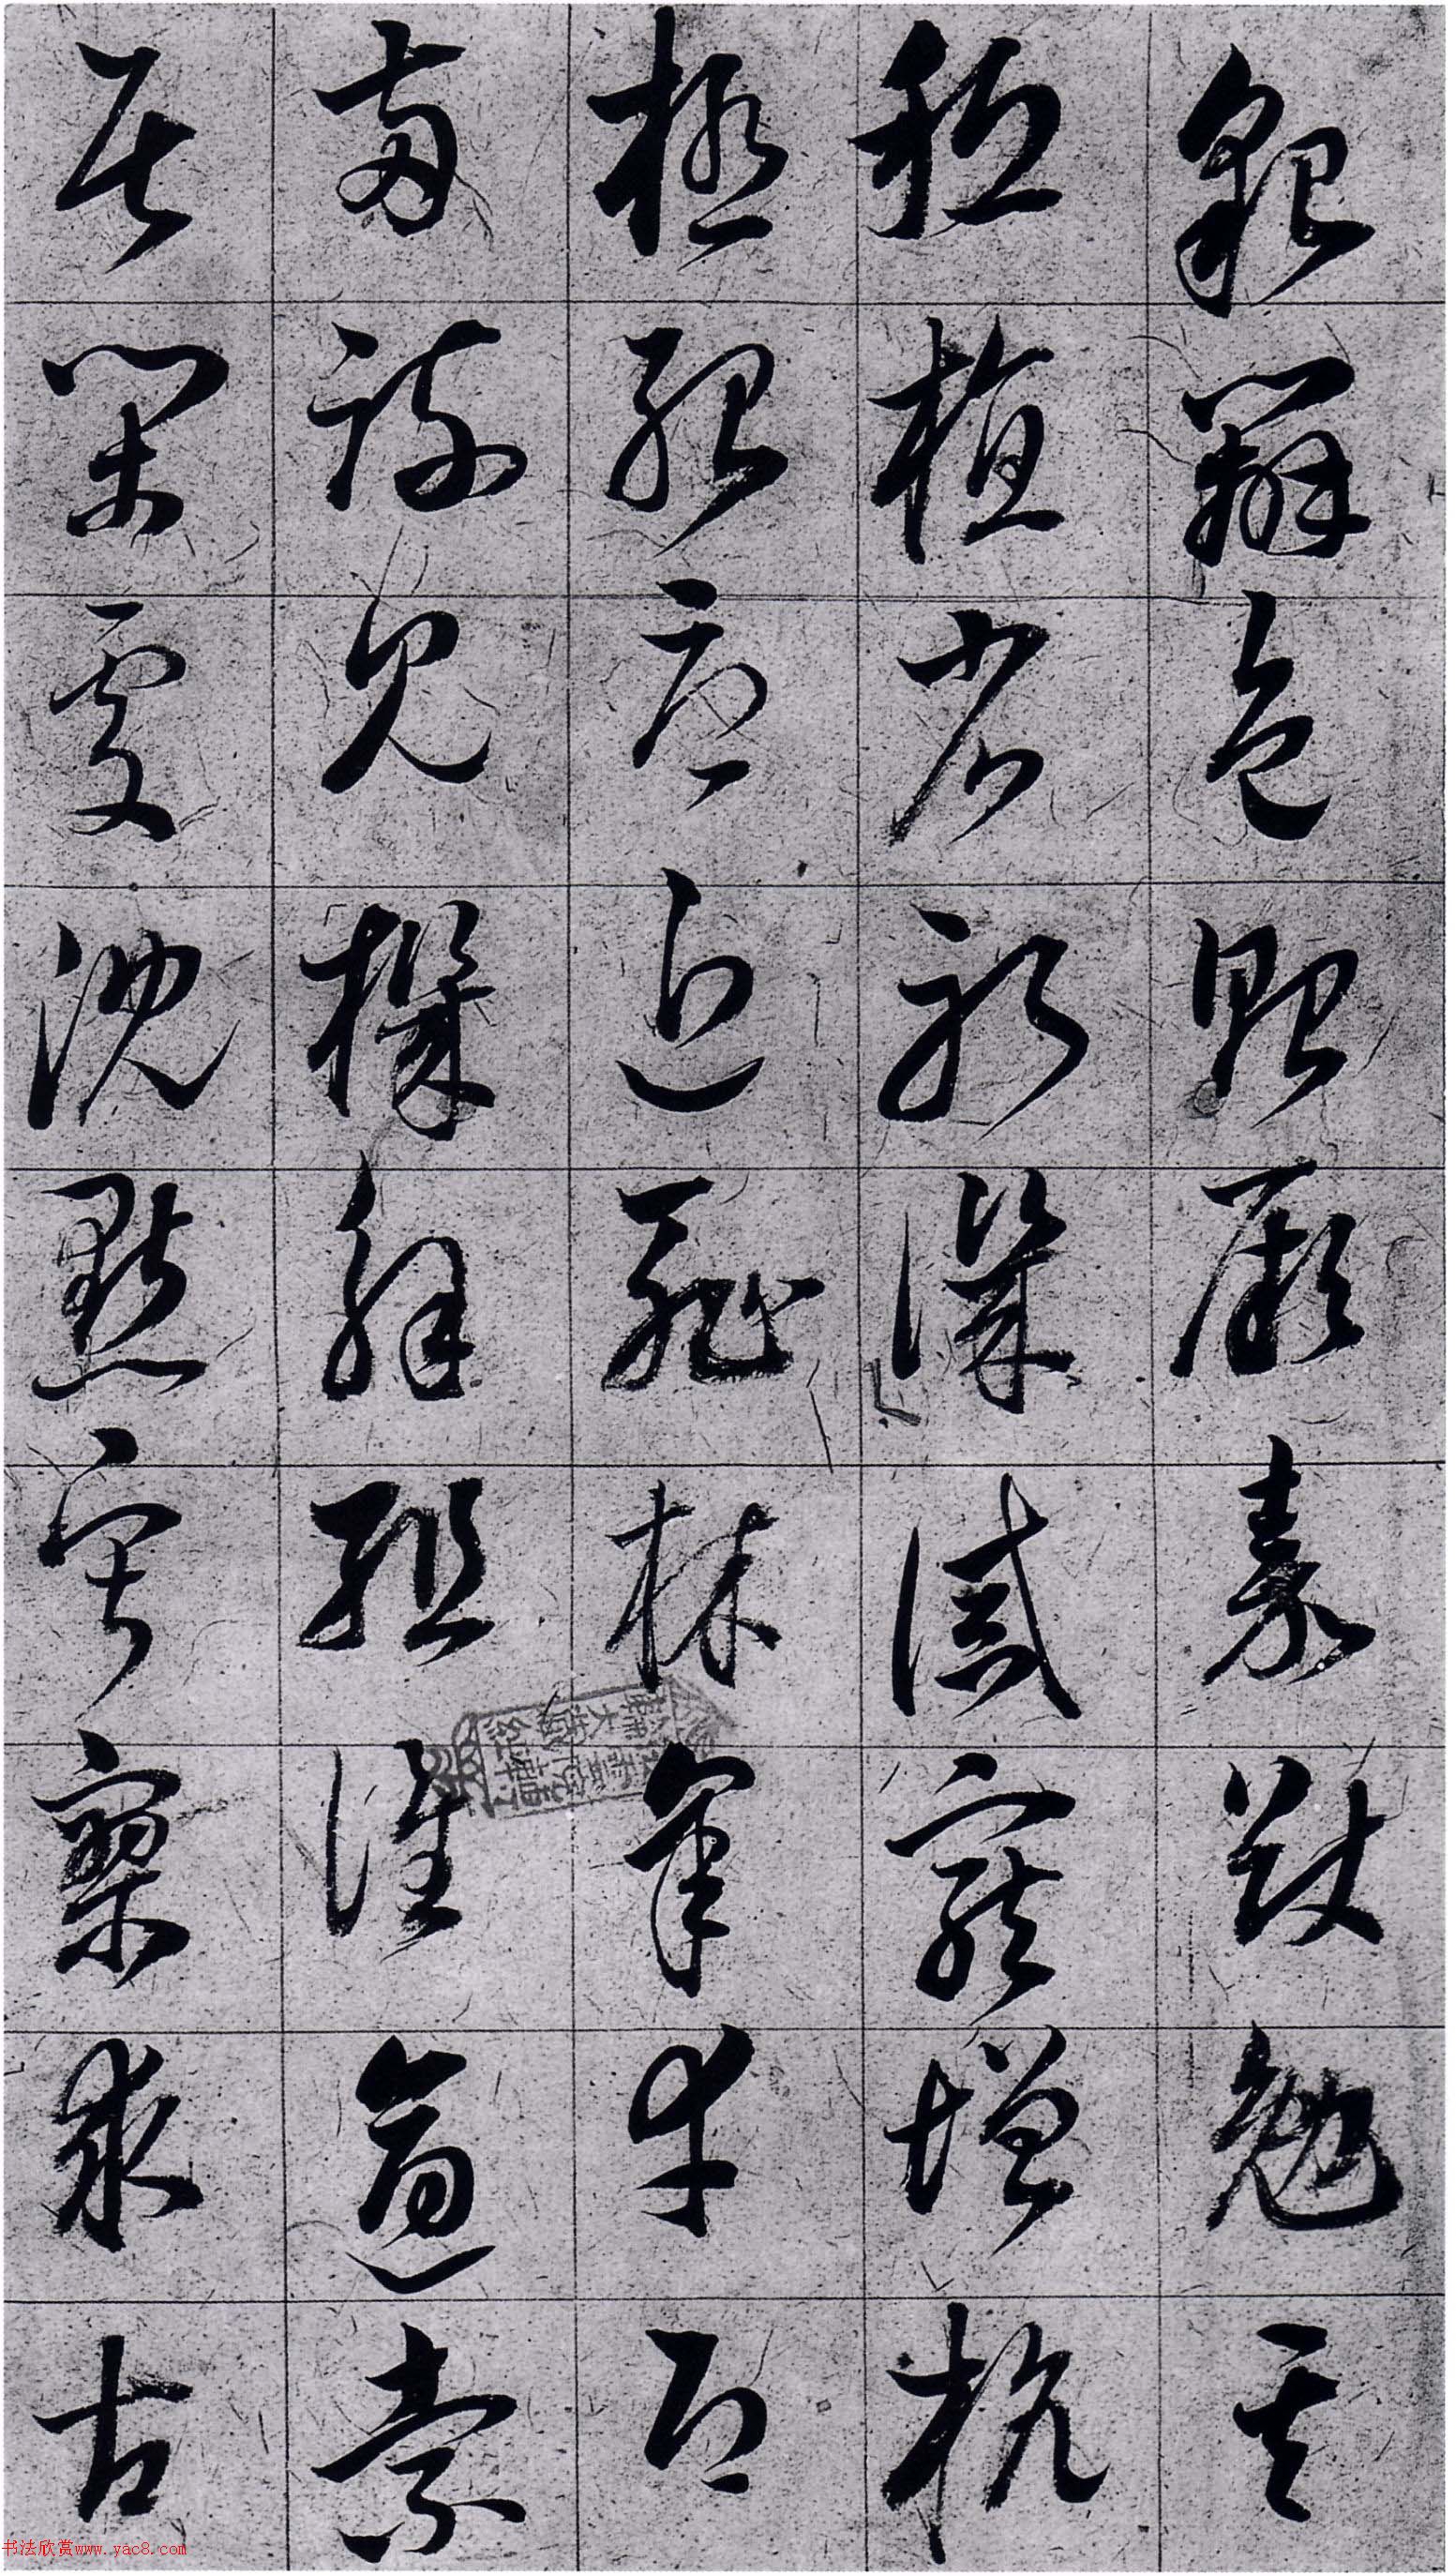 貌辨色貽厥嘉猷勉其
祗植省躬譏誡寵增抗
極殆辱近恥林皋幸即
兩疏見機解組誰逼索
居閑處沈默寂寥求古
书法欣赏www.yac8.com